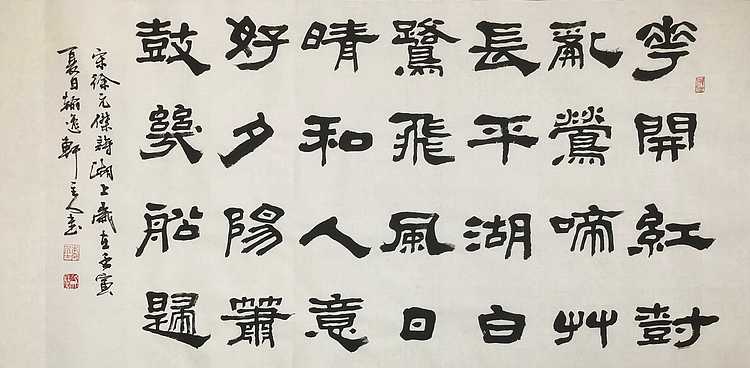 花開紅樹
亂鶯啼艸
長平湖白
鷺飛風日
晴和人意
好夕陽簫
鼓幾船歸
宋徐元傑詩湖上歲在壬寅
夏日翰逸軒主人書